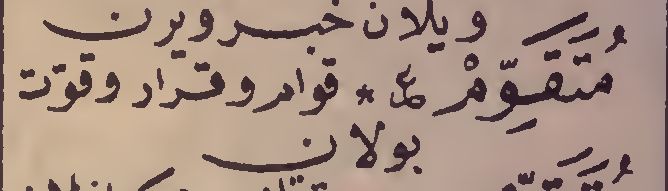 ويلان خبر ويرن
مُتَقَوِّمْ ع * قوام وقرار وقوّت
بولان